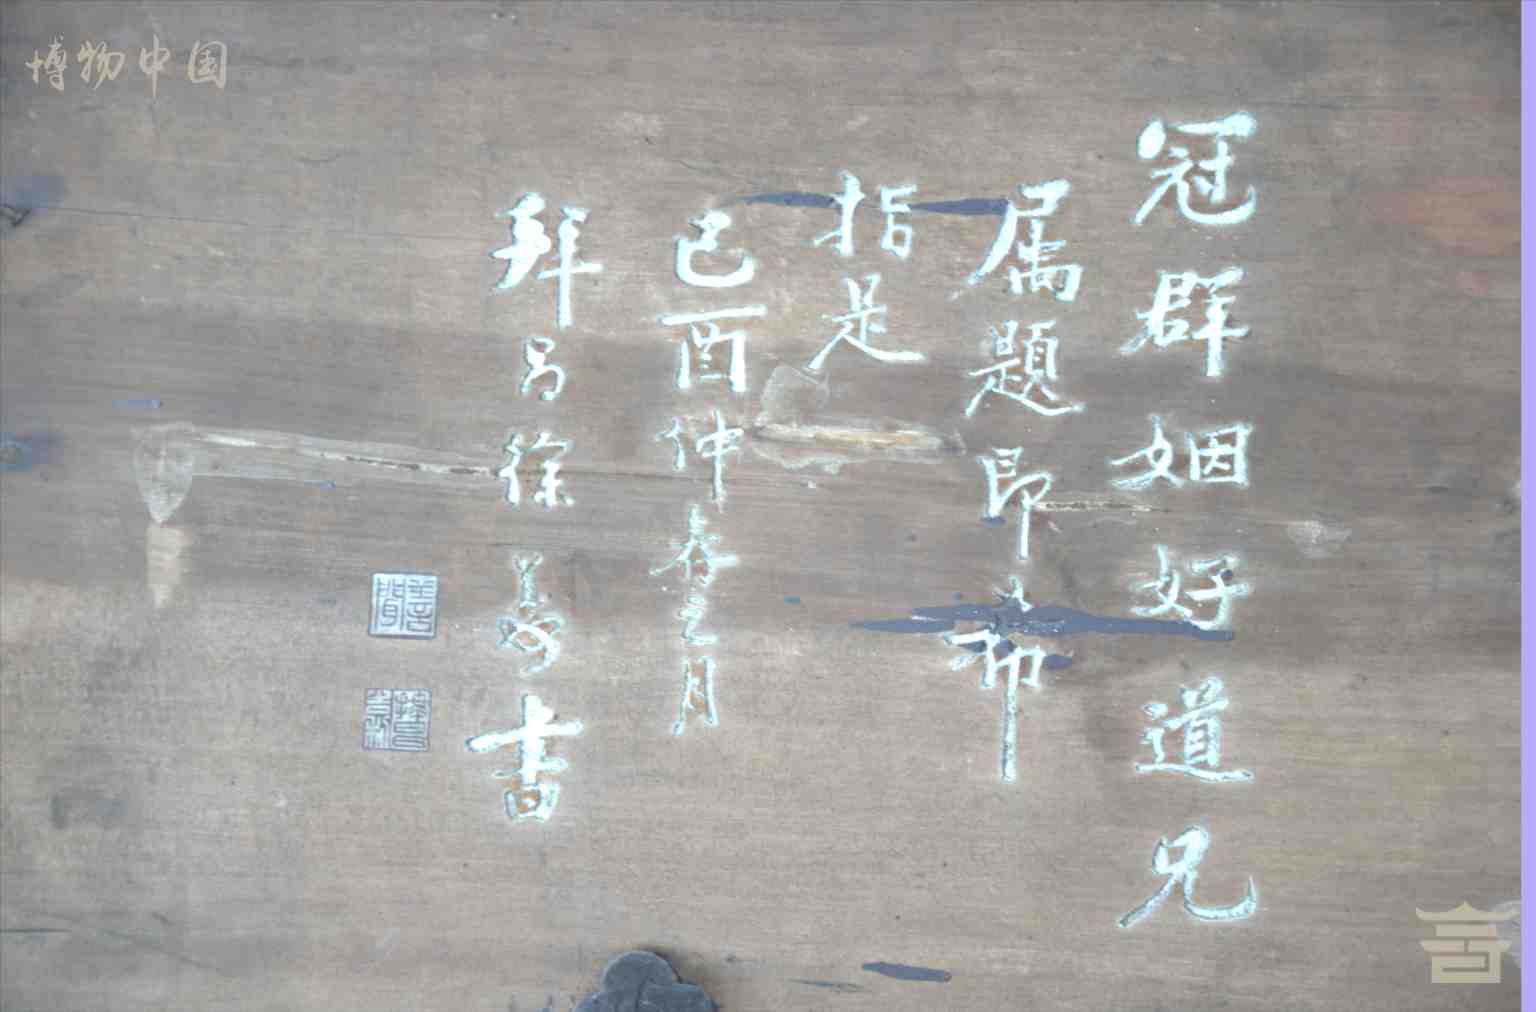 博物中国
冠群姻好道兄
属题即希
指是
己酉仲春之月
拜吕徐善书